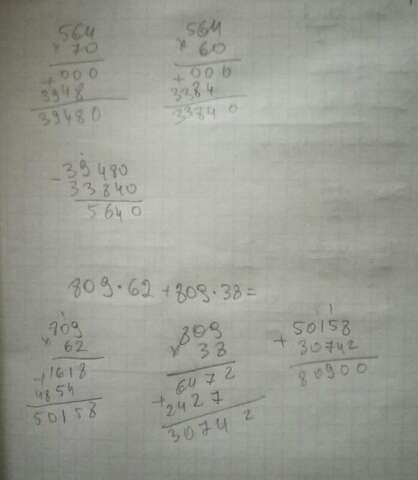 564
× 70
+ 000
3948
39480
564
× 60
+ 000
3384
33840
- 39480
33840
5640
809·62+809·38=
1
809
× 62
+ 1618
4854
50158
809
× 38
6472
+ 2427
30742
1
50158
+ 30742
80900